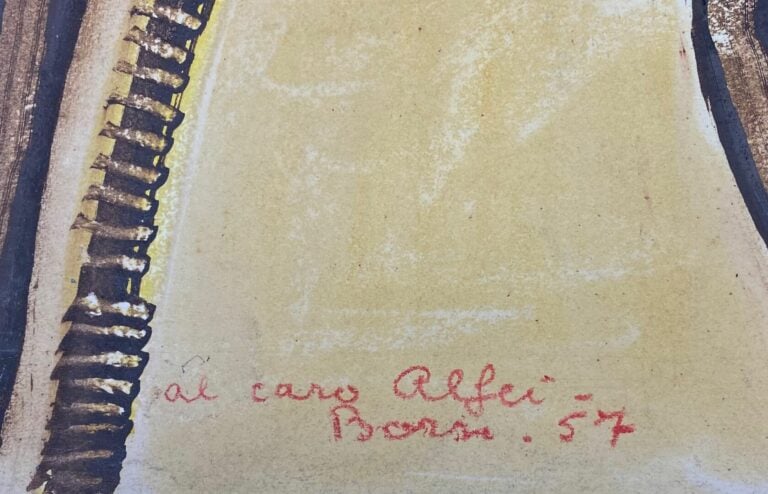 al caro Alfei -
Borsi . 57